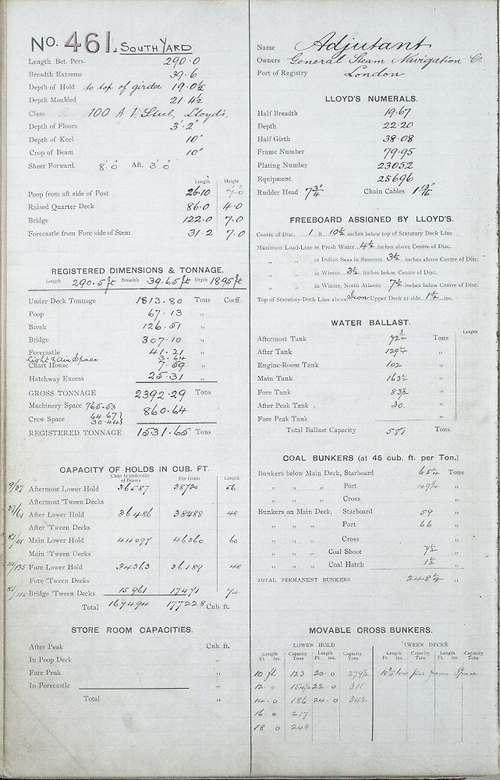 No. 461. SOUTH YARD
Length Bet. Pers. 290.0
Breadth Extreme 39.6
Depth of Hold to top of girder 19.0½
Depth Moulded 21.4½
Class 100 A 1 Steel, Lloyds.
Depth of Floors 3'.2"
Depth of Keel 10"
Crop of Beam 10"
Sheer Forward 8'.0" Aft. 3'.0"
Length Height
Poop from aft side of Post 26.10 7.0
Raised Quarter Deck 86.0 4.0
Bridge 122.0 7.0
Forecastle from Fore side of Stem 31.2 7.0
REGISTERED DIMENSIONS & TONNAGE.
Length 290.5 ft Breadth 39.65 ft Depth 18.95 ft
Under Deck Tonnage 1813.80 Tons Coeff.
Poop 67.13 "
Break 126.51 "
Bridge 307.10 "
Forecastle 41.21 "
Light & Air Space 3.64
Chart House 7.59 "
Hatchway Excess 25.31 "
GROSS TONNAGE 2392.29 Tons
Machinery Space 765.53
860.64
Crew Space 64.67
30.44
REGISTERED TONNAGE 1531.65 Tons
CAPACITY OF HOLDS IN CUB. FT.
Length
Aftermost Lower Hold 36587 56
Aftermost 'Tween Decks
After Lower Hold 36486 38488 48
After 'Tween Decks
Main Lower Hold 44097 46360 60
Main 'Tween Decks
Fore Lower Hold 34363 36189 48
Fore 'Tween Decks
Bridge 'Tween Decks 15961 17471 72
Total 167494 177228 Cub. ft.
STORE ROOM CAPACITIES.
After Peak Cub. ft.
In Poop Deck "
Fore Peak "
In Forecastle "
Total "
Name Adjutant
Owners General Steam Navigation Co
Port of Registry London
LLOYD'S NUMERALS.
Half Breadth 19.67
Depth 22.20
Half Girth 38.08
Frame Number 79.95
Plating Number 23052
Equipment 25696
Rudder Head 7¾ Chain Cables 1 9/16
FREEBOARD ASSIGNED BY LLOYD'S.
Centre of Disc, 1 ft 10½ inches below top of Statutory Deck Line
Maximum Load-Line in Fresh Water 4½ inches above Centre of Disc.
" in Indian Seas in Summer 3½ inches above Centre of Disc.
" in Winter 3½ inches below Centre of Disc.
" in Winter, North Atlantic 7½ inches below Centre of Disc.
Top of Statutory Deck Line above Iron Upper Deck at side 1½ ins.
WATER BALLAST.
Length
Aftermost Tank 72½ Tons
After Tank 129½ "
Engine-Room Tank 102 "
Main Tank 163½ "
Fore Tank 83½ "
After Peak Tank 30 "
Fore Peak Tank "
Total Ballast Capacity 581 Tons
COAL BUNKERS (at 45 cub. ft. per Ton.)
Bunkers below Main Deck, Starboard 65½ Tons
" " " Port "
" " " Cross "
Bunkers on Main Deck, Starboard 59 "
" " " Port 66 "
" " " Cross "
" " " Coal Shoot 7½ "
" " " Coal Hatch 1½ "
TOTAL PERMANENT BUNKERS 248½ "
MOVABLE CROSS BUNKERS.
LOWER HOLD 'TWEEN DECKS
Length Capacity Length Capacity Length Capacity Length Capacity
Ft. Ins. Tons Ft. Ins. Tons Ft. Ins. Tons Ft. Ins. Tons
10 ft 123 20.0 279½ 10½ tons per frame Space
12.0 154½ 22.0 311
14.0 186 24.0 342
16.0 217
18.0 248